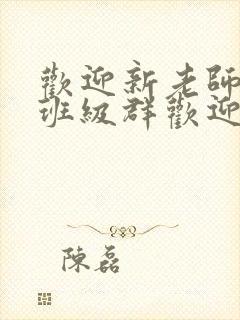 歡迎新老師
班級群歡迎
陳磊